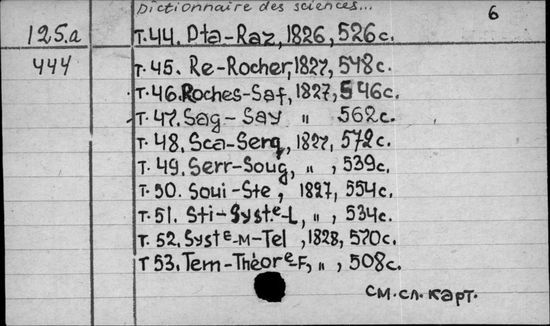 Dictionnaire des sciences...
6
125.a
т.44. Pta-Raz, 1826, 526 с.
444
т.45. Re-Rocher, 1827, 548 с.
т.46. Roches-Saf, 1827, 546 с.
т.47. Sag-Say " 562 с.
т.48. Sca-Serq, 1827, 572 с.
т.49. Serr-Soug, ", 539 с.
т.50. Soui-Ste, 1827, 554 с.
т.51. Sti-Syst.e-L, ", 534 с.
т.52. Syste-M-Tel, 1828, 570 с.
т 53. Tem-Théore-F, ", 508 с.
см. сл. карт.